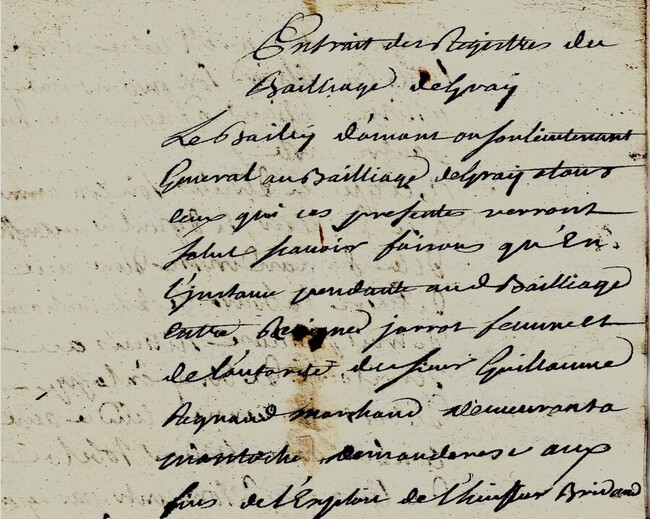 Extrait des Registres du
Bailliage de Gray
Le Bailly d'amont ou son lieutenant
General au Bailliage de Gray a tous
ceux qui ces presentes verront
salut scavoir faisons qu'En
L'instance pendante aud Bailliage
Entre Reigne jarrot femme et
de l'autorité du sieur Guillaume
Regnaud marchand demeurant a
mantoche demanderesse aux
fins de l'Exploit de l'huissier Brivand